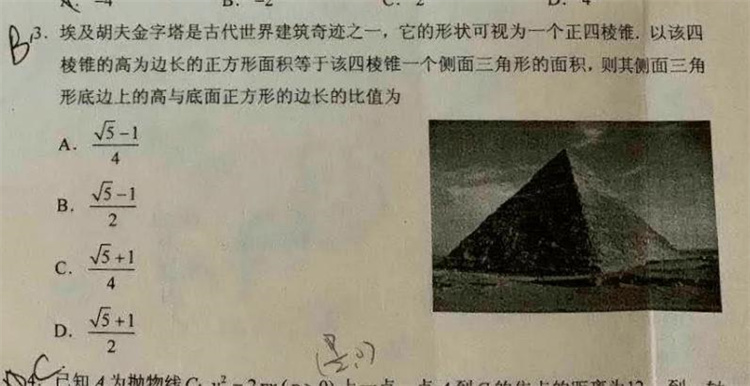 B. -2
C. 2
D. 4
B 3. 埃及胡夫金字塔是古代世界建筑奇迹之一，它的形状可视为一个正四棱锥. 以该四
棱锥的高为边长的正方形面积等于该四棱锥一个侧面三角形的面积，则其侧面三角
形底边上的高与底面正方形的边长的比值为
A. (√5-1)/4
B. (√5-1)/2
C. (√5+1)/4
D. (√5+1)/2
C 4. 已知 A 为抛物线 C: y² = 2px (p > 0) 上一点，点 A 到 C 的焦点的距离为12，到